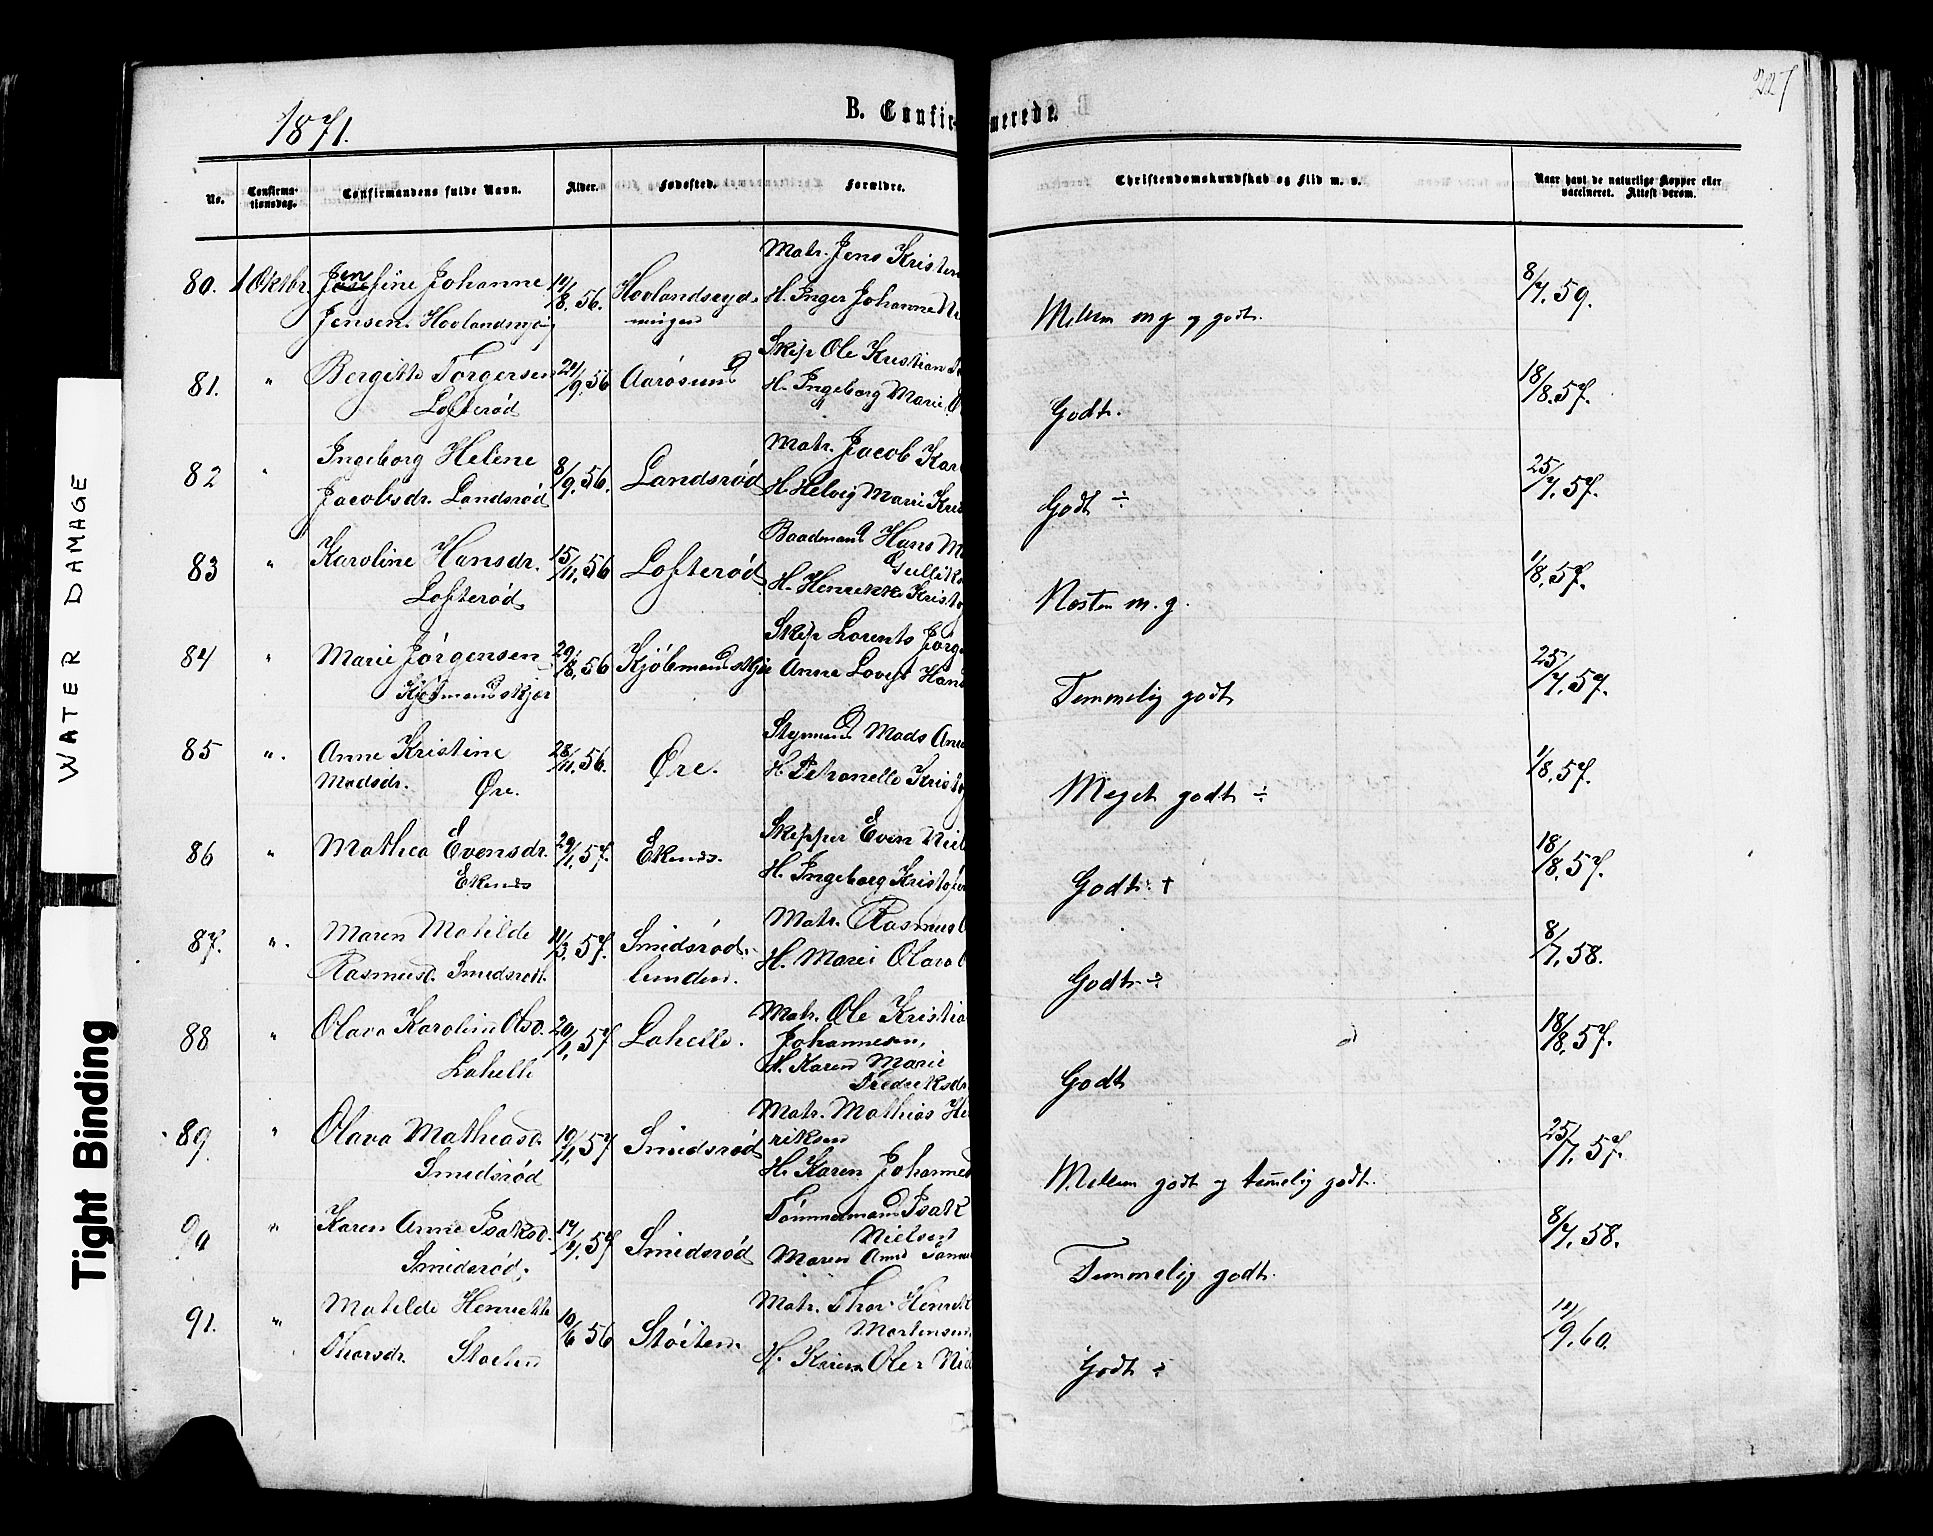 227
1871.
B. Confir- merede.
No.
Confirma-
tionsdag.
Confirmandens fulde Navn.
Alder.
Fødested.
Forældre.
Christendomskundskab og Flid m. v.
Naar havt de naturlige Kopper eller
vaccineret. Attest derom.
80. 1 Oktbr. Jensine Johanne
Jensen. Hovlandsrydng
56. Hovlandsryd-
ningen
Matr. Jens Kristen
H. Inger Johanne
Mellem mg og godt.
8/7. 59.
81. " Bergitte Torgersen
Lofterød
9. 56 Aarøsund
Skip Ole Kristian
H. Ingeborg Marie
Godt.
18/8. 57.
82 " Ingeborg Helene
Jacobsdr. Landsrød
8/9. 56. Landsrød
Matr. Jacob Karl
H. Helvig Marie Kris
Godt ÷
25/7. 57.
83 " Karoline Hansdr.
Lofterød
15/11. 56 Lofterød
Baadmand Hans M
Gulliks
H. Henrikke Kristo
Næsten m. g.
1/8. 57.
84 " Marie Jørgensen
Kjøbmandskjær
29/8. 56 Kjøbmandskjær
Skip Lorents Jørg
Anne Lovise Hans
Temmelig godt
25/7. 57.
85 " Anne Kristine
Madsdr. Øre.
28/11. 56. Øre.
Styrmand Mads And
H. Petronelle Kristo
Meget godt ÷
1/8. 57.
86 " Mathea Evensdr.
Ekenes
29/1. 57. Ekenes.
Skipper Even Niel
H. Ingeborg Kristofer
Godt †
18/8. 57.
87. " Maren Matilde
Rasmusd. Smidsrød.
11/3. 57. Smidsrød-
lunden.
Matr. Rasmus O
H. Marie Olava
Godt ÷
8/7. 58.
88 " Olava Karoline Olsd.
Lahelle
20/1. 57. Lahelle.
Matr. Ole Kristia
Johannesen,
H. Karen Marie
Fredriksdr
Godt
18/8. 57.
89. " Olava Mathiasd.
Smidsrød
19/1. 57 Smidsrød
Matr. Mathias He
riksen
H. Karen Johanne
Mellem godt og temmelig godt.
25/7. 57.
90 " Karen Anne Isaksd.
Smidsrød.
57 Smidsrød
Tømmermand Isak
Nielsen
Maren Anne
Temmelig godt.
8/7. 58.
91. " Matilde Henriette
Thorsdr. Støiten
10/6 56 Støiten.
Matr. Thor Henrik
Mortensen
H. Karen Ole
Godt ÷
9. 60.
WATER DAMAGE
Tight Binding